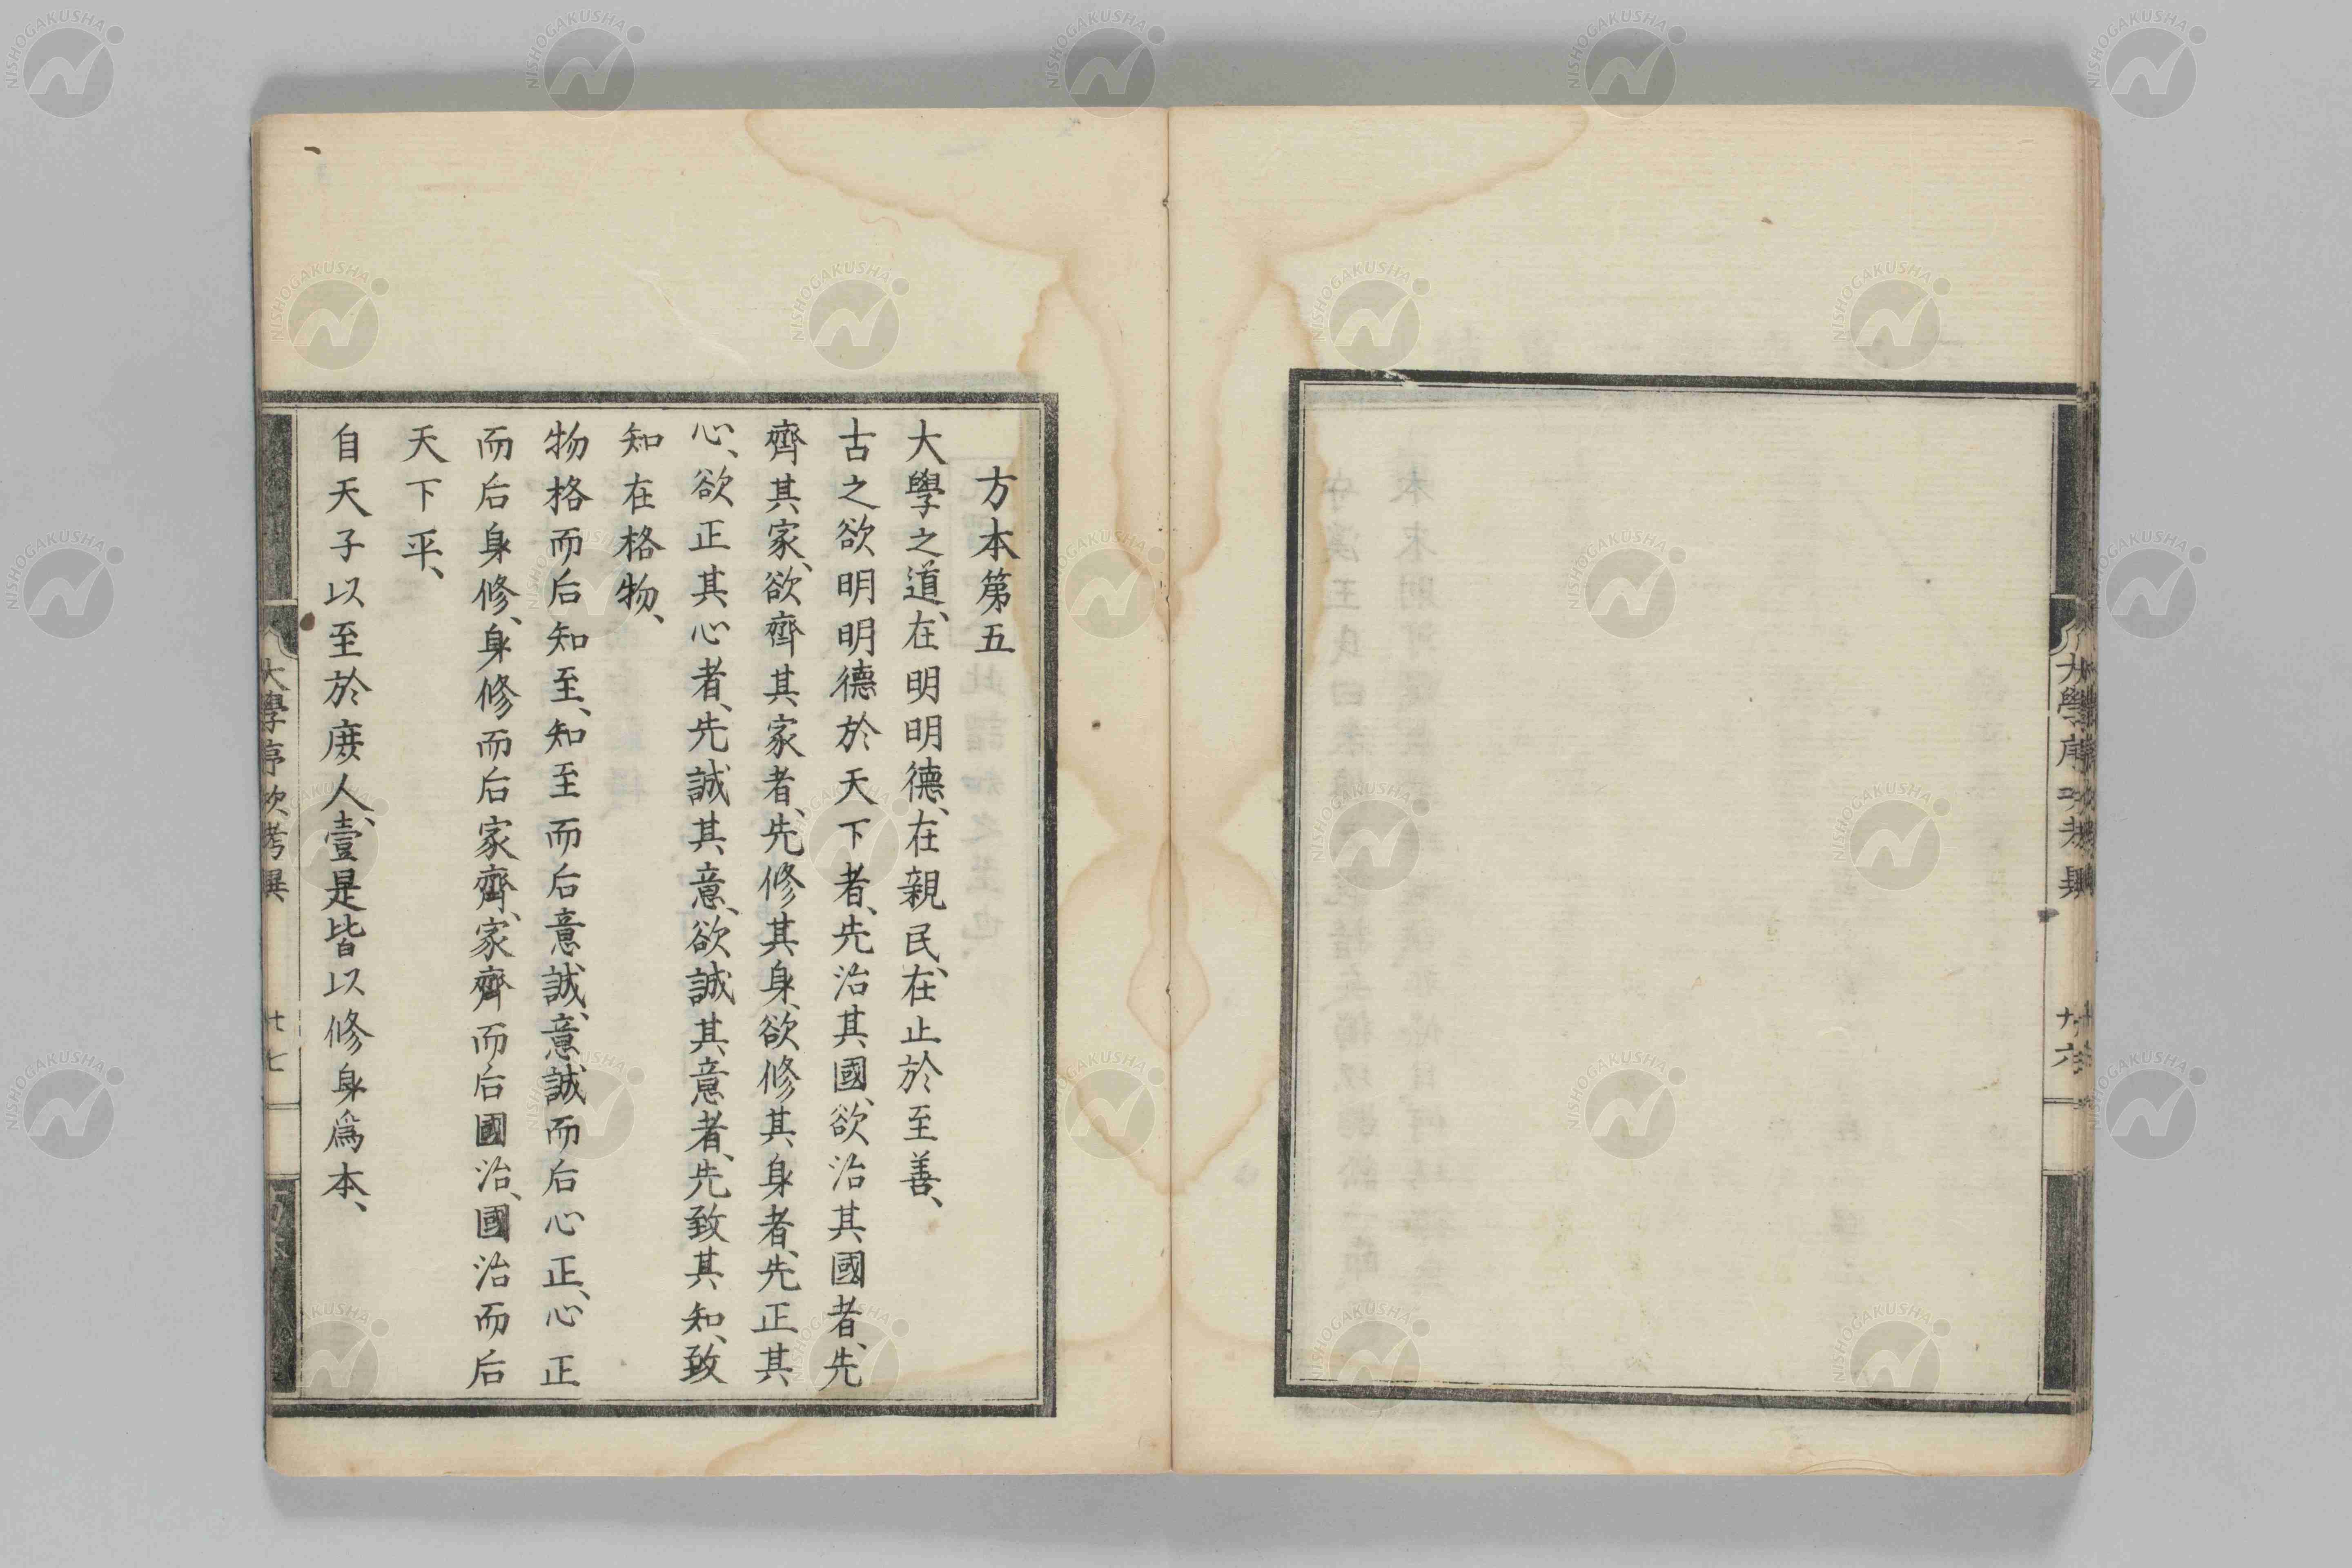 方本第五
大學之道、在明明德、在親民、在止於至善、
古之欲明明德於天下者、先治其國、欲治其國者、先
齊其家、欲齊其家者、先修其身、欲修其身者、先正其
心、欲正其心者、先誠其意、欲誠其意者、先致其知、致
知在格物、
物格而后知至、知至而后意誠、意誠而后心正、心正
而后身修、身修而后家齊、家齊而后國治、國治而后
天下平、
自天子以至於庶人、壹是皆以修身爲本、
大學序次考異
十七
NISHOGAKUSHA